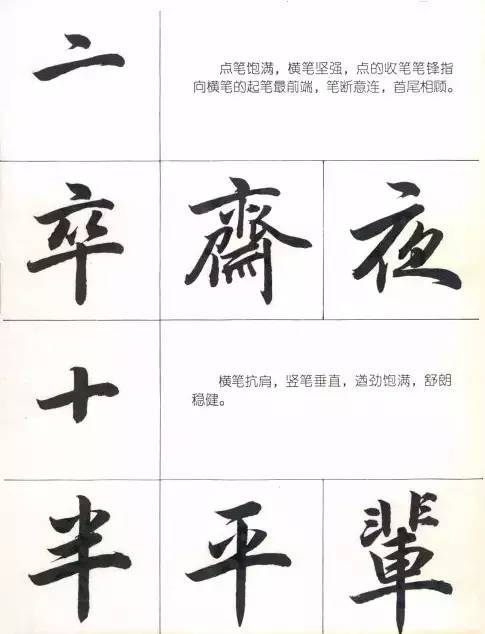 亠
点笔饱满，横笔坚强，点的收笔笔锋指
向横笔的起笔最前端，笔断意连，首尾相顾。
卒 齋 夜
十
横笔抗肩，竖笔垂直，遒劲饱满，舒朗
稳健。
半 平 輩